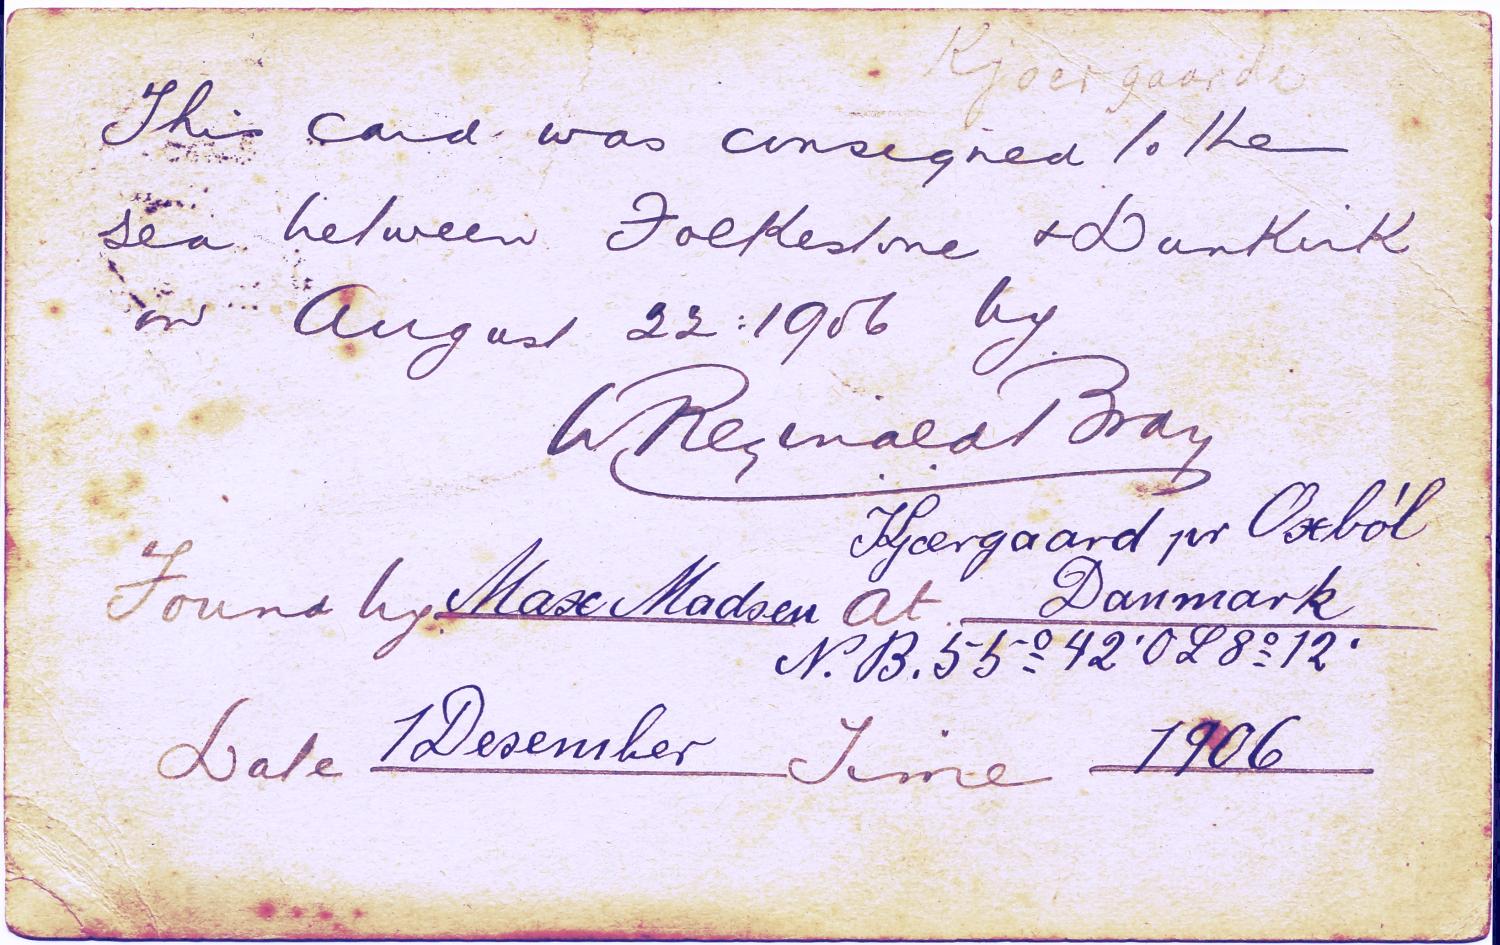 Kjoergaarde
This card was consigned to the
sea between Folkestone & Dunkirk
on August 22:1906 by
W Reginald Bray
Kjærgaard pr Oxböl
Found by Max Madsen At Danmark
N. B. 55° 42' O L 8° 12'
Date 1 Desember Time 1906